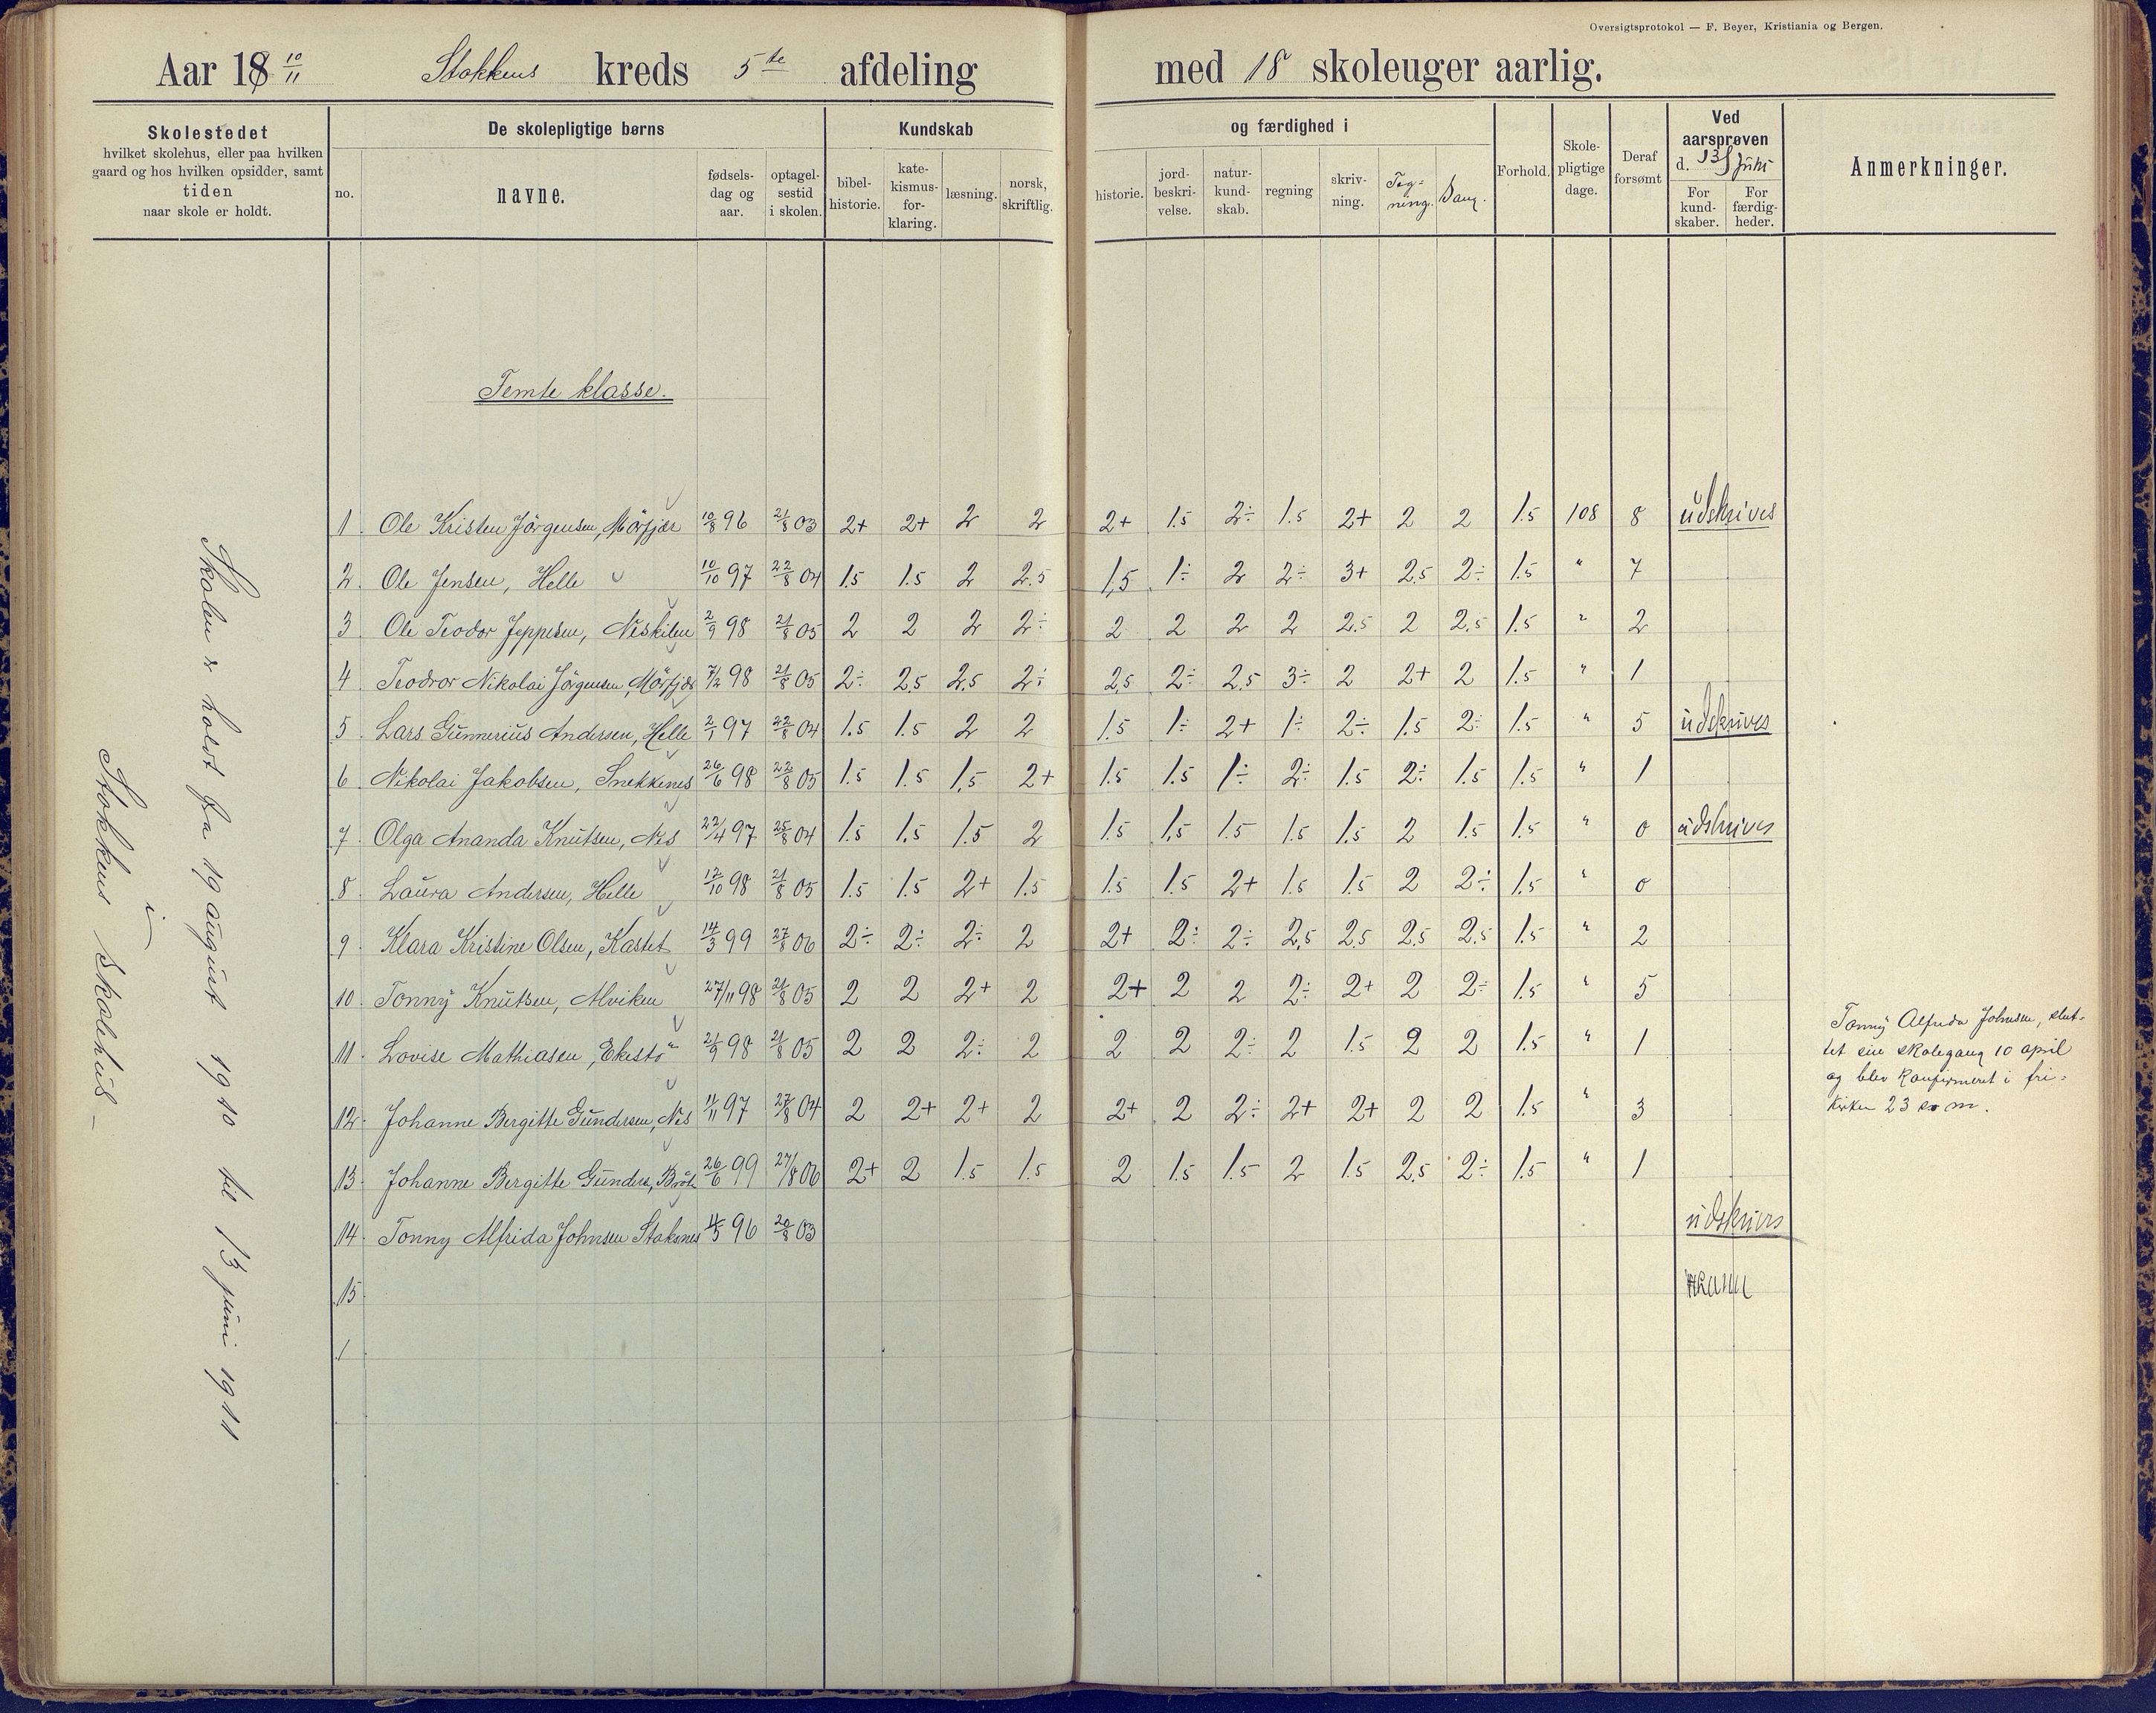 Oversigtsprotokol — F. Beyer, Kristiania og Bergen.
Aar 18 10/11 Stokkens kreds 5te afdeling med 18 skoleuger aarlig.
Skolestedet
hvilket skolehus, eller paa hvilken
gaard og hos hvilken opsidder, samt
tiden
naar skole er holdt.
De skolepligtige børns
no.
navne.
fødsels-
dag og
aar.
optagel-
sestid
i skolen.
Kundskab
bibel-
historie.
kate-
kismus-
for-
klaring.
læsning.
norsk,
skriftlig.
og færdighed i
historie.
jord-
beskri-
velse.
natur-
kund-
skab.
regning
skriv-
ning.
Teg-
ning.
Sang.
Forhold.
Skole-
pligtige
dage.
Deraf
forsømt
Ved
aarsprøven
d. 13/
For
kund-
skaber.
For
færdig-
heder.
Anmerkninger.
Skolen er holdt fra 19 august 1910 til 13 juni 1911
i
Stokkens skolehus –
Femte klasse.
1 Ole Kristen Jörgensen, Mörfjær 10/8 96 21/8 03 2+ 2+ 2 2 2+ 1.5 2÷ 1.5 2+ 2 2 1.5 108 8 udskrives
2. Ole Jensen, Helle 10/10 97 22/8 04 1.5 1.5 2 2.5 1,5 1÷ 2 2÷ 3+ 2,5 2÷ 1.5 " 7
3 Ole Teodor Jeppesen, Neskilen 2/9 98 21/8 05 2 2 2 2÷ 2 2 2 2 2.5 2 2,5 1.5 " 2
4 Teodror Nikolai Jörgensen, Mörfjær 7/2 98 21/8 05 2÷ 2,5 2,5 2÷ 2,5 2÷ 2,5 3÷ 2 2+ 2 1.5 " 1
5 Lars Gunnerius Andersen, Helle 2/1 97 22/8 04 1.5 1.5 2 2 1.5 1÷ 2+ 1÷ 2÷ 1.5 2÷ 1.5 " 5 udskrives
6. Nikolai Jakobsen, Snekkenes 26/6 98 22/8 05 1.5 1.5 1,5 2+ 1.5 1.5 1÷ 2÷ 1.5 2÷ 1.5 1.5 " 1
7. Olga Ananda Knutsen, Nes 22/4 97 25/8 04 1.5 1,5 1.5 2 1.5 1,5 1.5 1.5 1,5 2 1.5 1.5 " 0 udskrives
8. Laura Andersen, Helle 12/10 98 21/8 05 1.5 1.5 2+ 1.5 1.5 1.5 2+ 1.5 1.5 2 2÷ 1.5 " 0
9. Klara Kristine Olsen, Kastet 14/3 99 27/8 06 2÷ 2÷ 2÷ 2 2+ 2÷ 2÷ 2,5 2.5 2,5 2.5 1.5 " 2
10. Tonny Knutsen, Alviken 27/11 98 21/8 05 2 2 2+ 2 2+ 2 2 2÷ 2+ 2 2÷ 1.5 " 5
11. Lovise Mathiasen, Ekestö 21/9 98 21/8 05 2 2 2÷ 2 2 2 2÷ 2 1.5 2 2 1.5 " 1
12. Johanne Bergitte Gundersen, Nes 11/11 97 27/8 04 2 2+ 2+ 2 2+ 2 2÷ 2+ 2+ 2 2 1.5 " 3
13. Johanne Bergitte Gunders, 26/6 99 27/8 06 2+ 2 1.5 1.5 2 1.5 1.5 2 1.5 2,5 2÷ 1.5 " 1
14. Tonny Alfrida Johnsen Staksnes 96 20/8 03 udskrives
15
1
Tonny Alfrida Johnsen, slut-
tet sin skolegang 10 april
og blev konfirmeret i fri-
kirken 23 s. m.